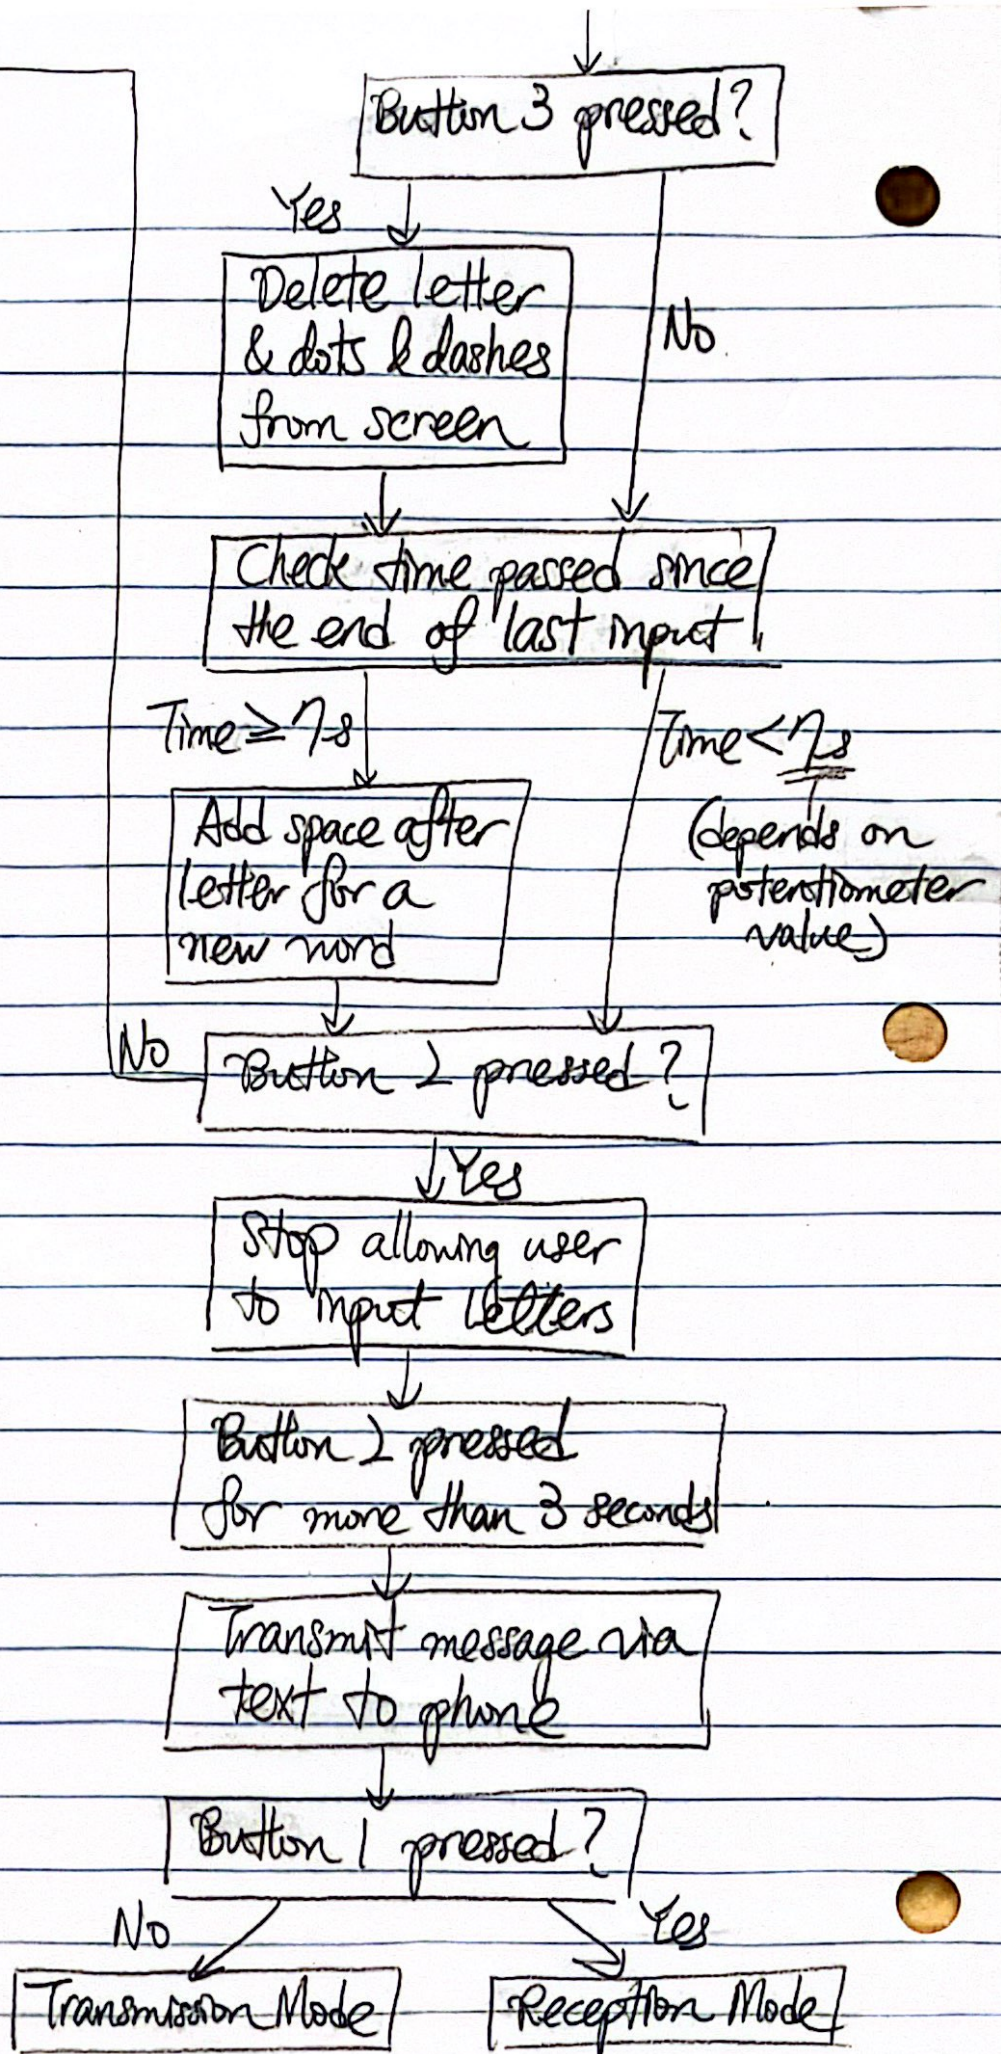 Button 3 pressed?
Yes
No
Delete letter
& dots & dashes
from screen
Check time passed since
the end of last input
Time ≥ 7s
Time < 7s
(depends on
potentiometer
value)
Add space after
letter for a
new word
No
Button 2 pressed?
Yes
Stop allowing user
to input letters
Button 2 pressed
for more than 3 seconds
Transmit message via
text to phone
Button 1 pressed?
No
Yes
Transmission Mode
Reception Mode